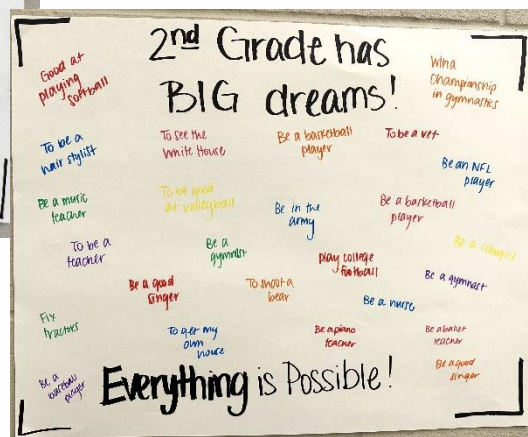 2nd Grade has
BIG dreams!
Good at
playing
softball
Win a
Championship
in gymnastics
To be a
hair stylist
To see the
White House
Be a basketball
player
To be a vet
Be an NFL
player
Be a music
teacher
To be good
at volleyball
Be in the
army
Be a basketball
player
Be a cowgirl
To be a
teacher
Be a
gymnast
Play college
football
Be a gymnast
Be a good
singer
To shoot a
bear
Be a nurse
Fix
tractors
To get my
own
house
Be a piano
teacher
Be a ballet
teacher
Be a
baseball
player
Be a good
singer
Everything is Possible!